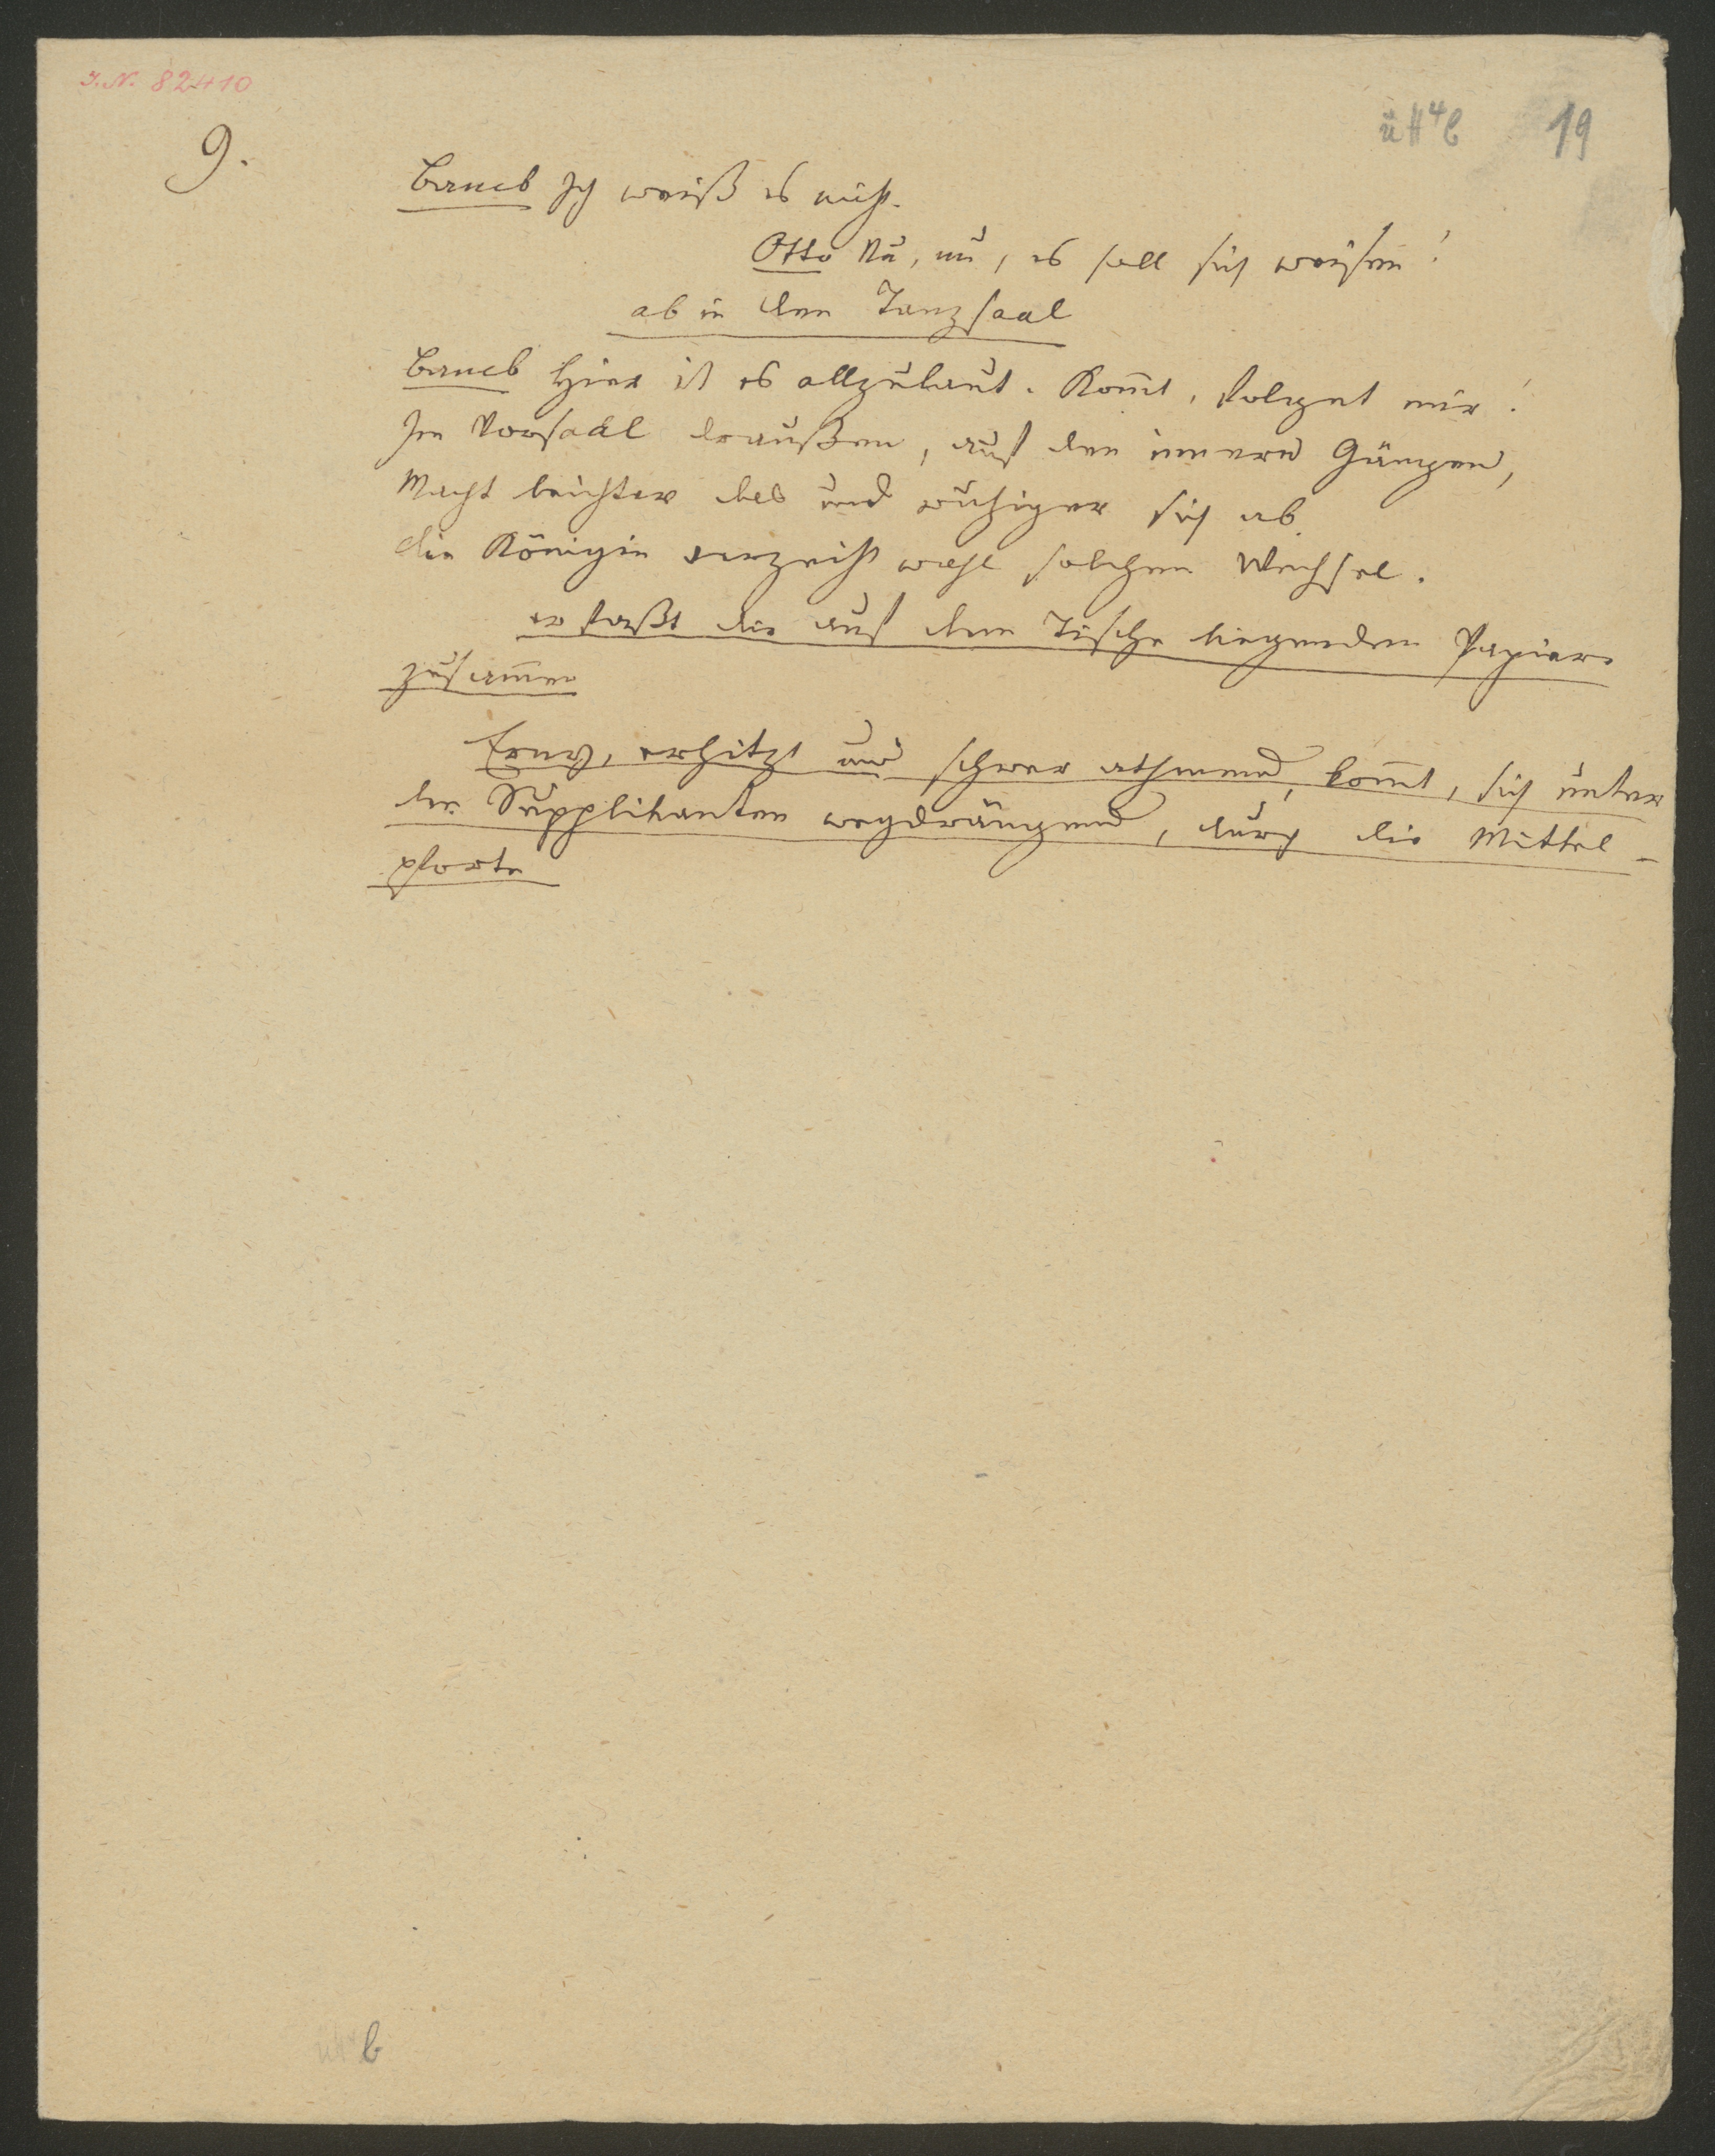 I.N. 82410
üH⁴b 19
9.
Bancb Ich weiß es nicht.
Otto Nu, nu, es soll sich weisen!
ab in den Tanzsaal
Bancb Hier ist es allzulaut. Kom̅t, folget mir!
Im Vorsaal draußen, auf den innern Gängen,
Macht leichter das und ruhiger sich ab
die Königin verzeiht wohl solchen Wechsel.
er faßt die auf dem Tische liegenden Papiere
zusam̅en
Erny, erhitzt und schwer athmend, kom̅t, sich unter
die Supplikanten wegdrängend, durch die Mittel-
pforte
b